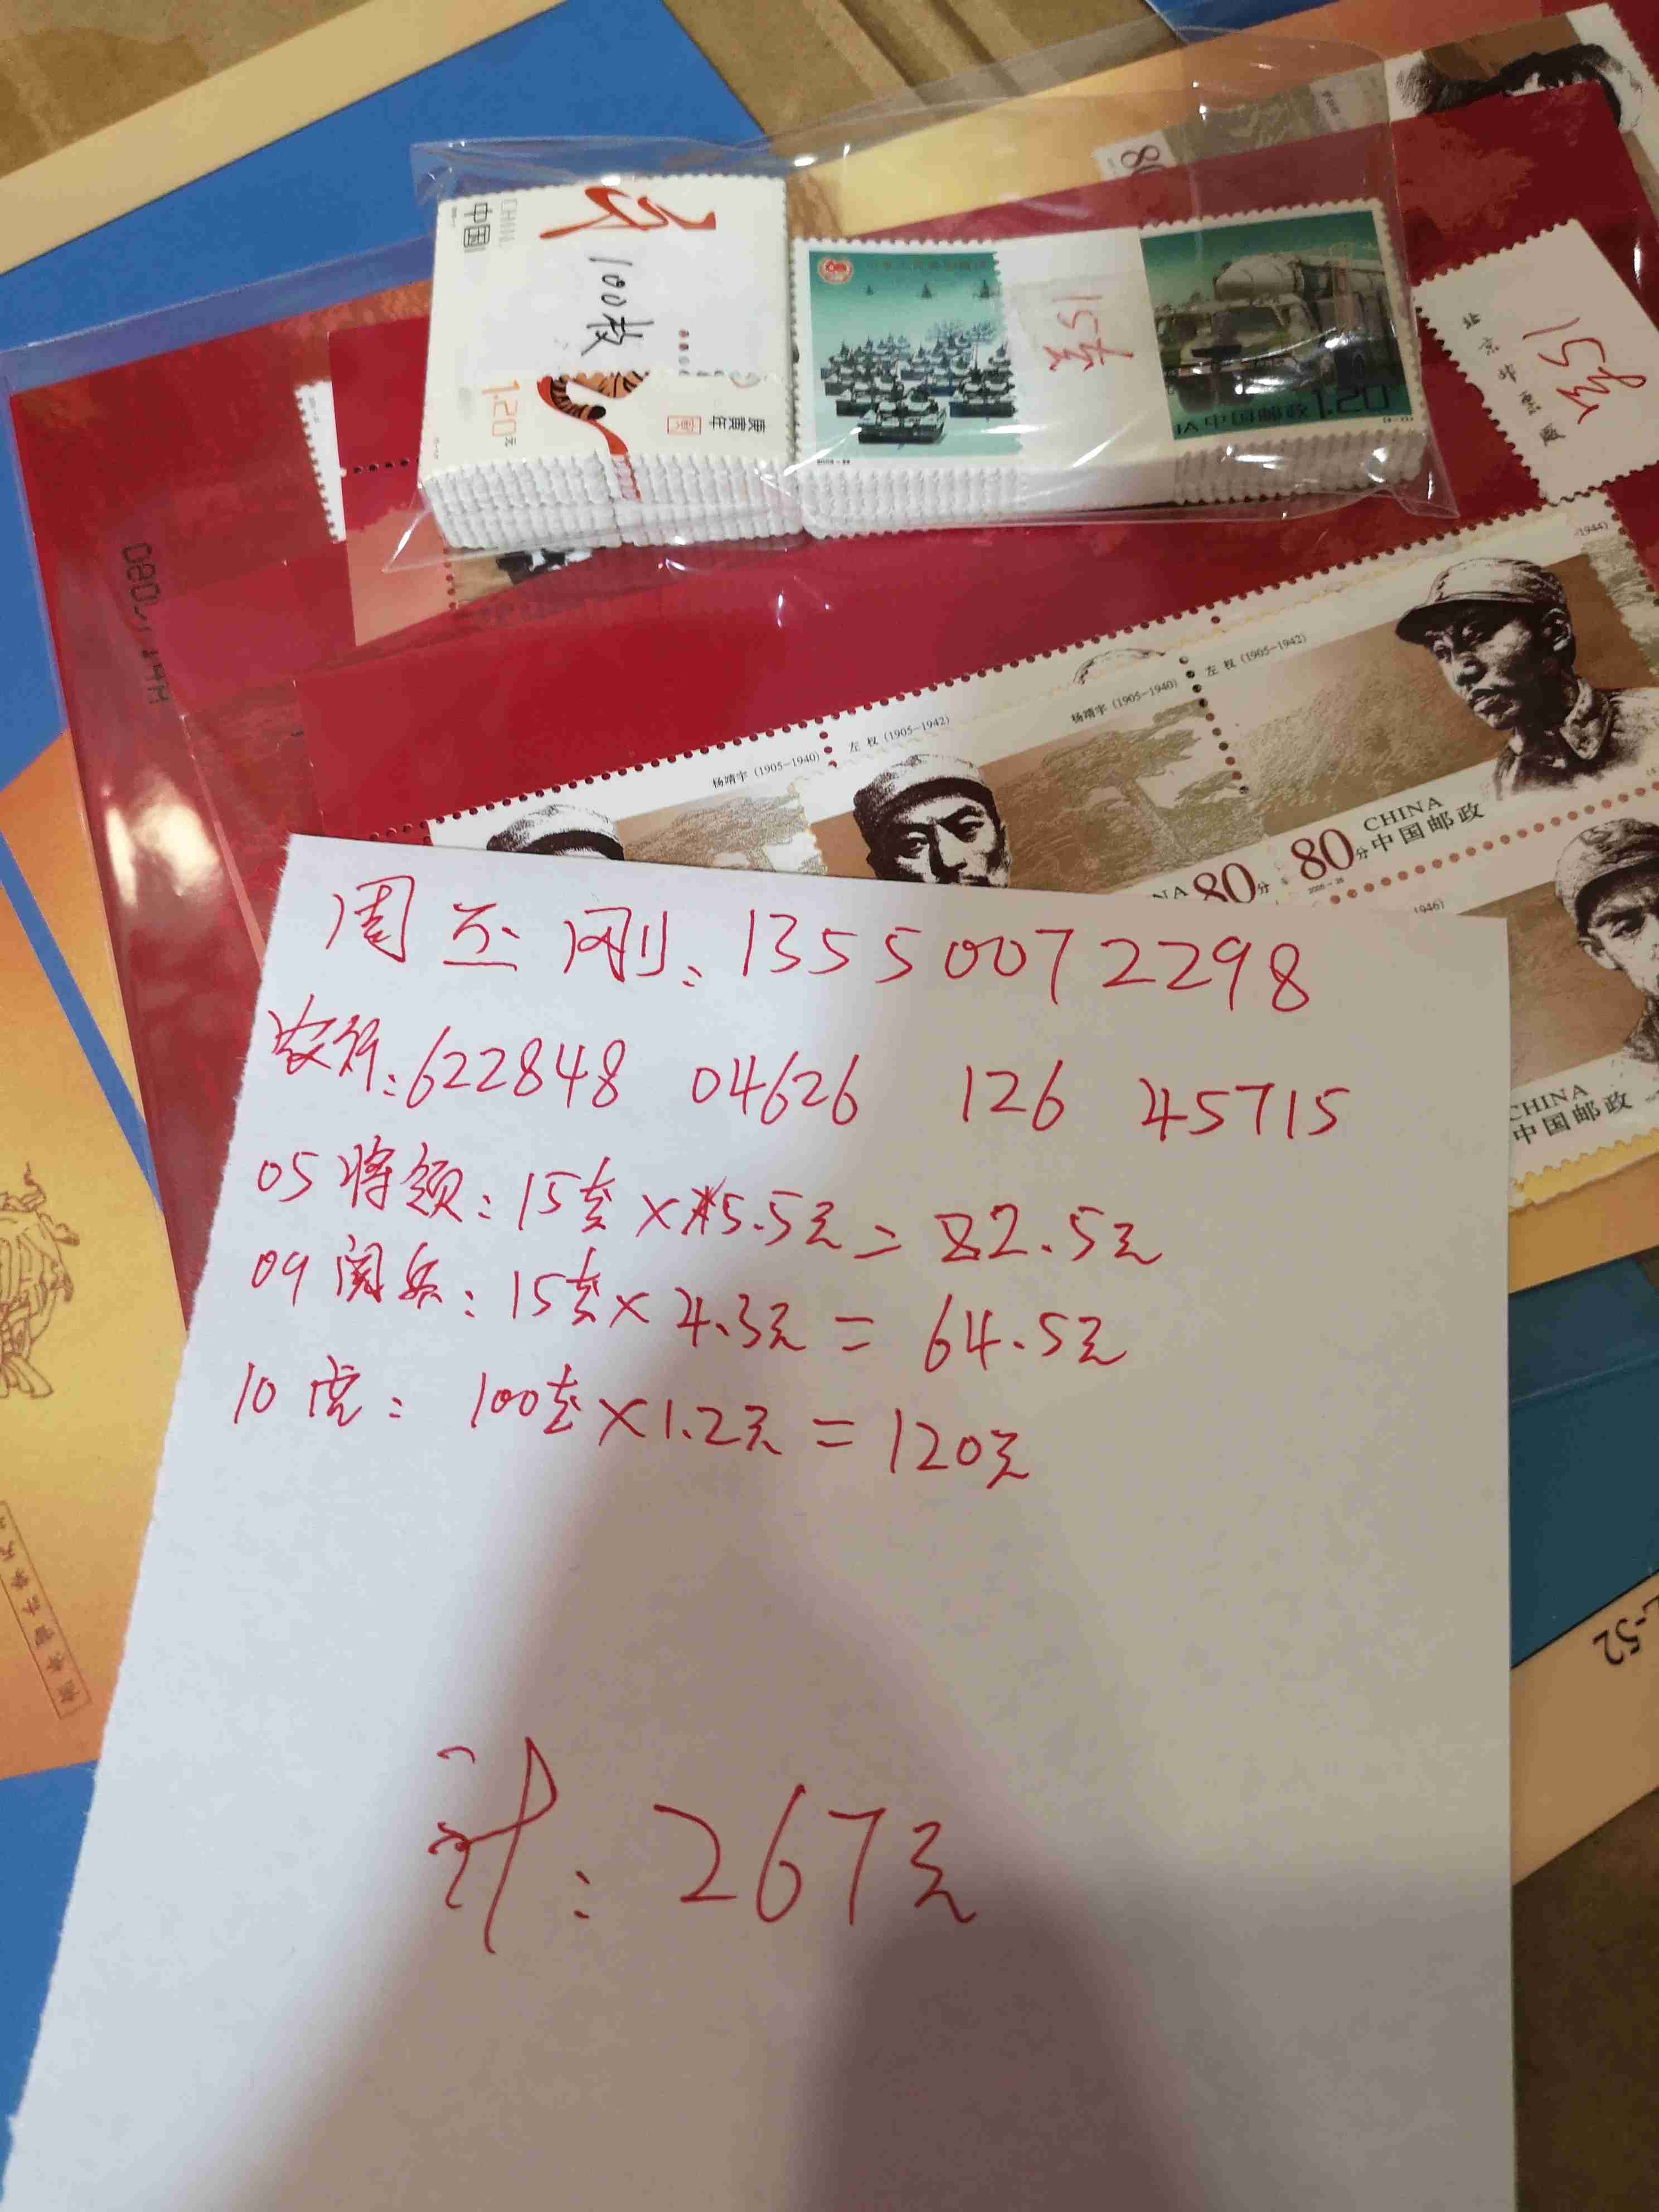 中国
CHINA
100枚
1.20元
庚寅年
15套
中国邮政 1.20
80
15套
北京邮票厂
1944)
杨靖宇 (1905-1940)
左 权 (1905-1942)
杨靖宇 (1905-1940)
左 权 (1905-1942)
80分
80分
CHINA
中国邮政
1946)
CHINA
中国邮政
周玉刚:13550072298
农行:622848 04626 126 45715
05将领:15套×5.5元=82.5元
09阅兵:15套×4.3元=64.5元
10虎:100套×1.2元=120元
计:267元
-52